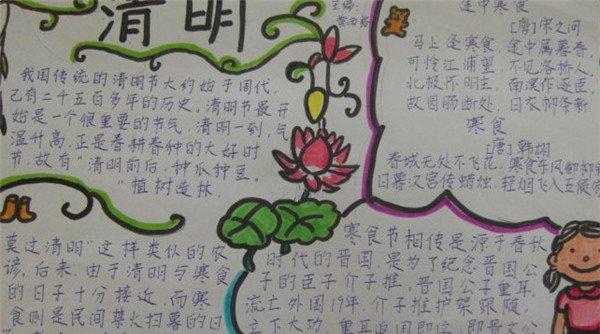 清明
主编:
我国传统的清明节大约始于周代,
已有二千五百多年的历史,清明节最开
始是一个很重要的节气,清明一到,气
温升高,正是春耕春种的大好时
节,故有“清明前后,种瓜种豆。”
“植树造林,
莫过清明”这样类似的农
谚,后来,由于清明与寒食
的日子十分接近,而寒
食则是民间禁火扫墓的日
途中寒食
[唐]宋之问
马上逢寒食,途中属暮春
可怜江浦望,不见洛桥人,
北极怀明主,南溟作逐臣,
故园肠断处,日夜柳条新
寒食
[唐]韩翃
春城无处不飞花,寒食东风御柳
日暮汉宫传蜡烛,轻烟飞入五侯
寒食节相传是源于春秋
时代的晋国,是为了纪念晋国公
子的臣子介子推,晋国公子重耳,
流亡外国19年,介子推护驾跟随,
立下大功,重耳返国即位,即晋